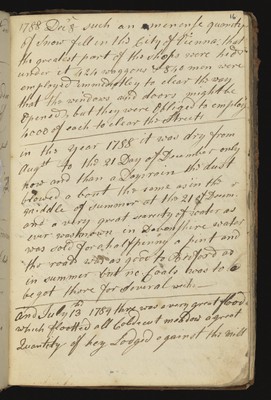 16
1788 Decr 8 such an emense quantity
of Snow fell in the City of Vienna; that
the greatest part of the shops were hid
under it 424 waggons & 840 men were
employed immediatley to clear the way
that the windows and doors might be
opened, but they were obliged to employ
4000 of each to clear the Streets
in the year 1788 it was dry from
Augst to the 21 Day of December only
now and than a Day rain the dust
blowed a bout the same as in the
middle of summer at the 21 of Decem
and a very great scarcity of water as
ever was known in Devonshire water
was sold for a halfpenny a pint and
the road was as good to as
in summer but no Coals was to
be got there for several weeks
and July th 1789 there was a very great flood
which flooted all meadow a great
Quantity of hay Lodged against the mill